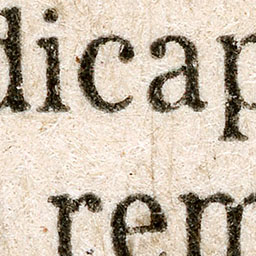 dicap
rem